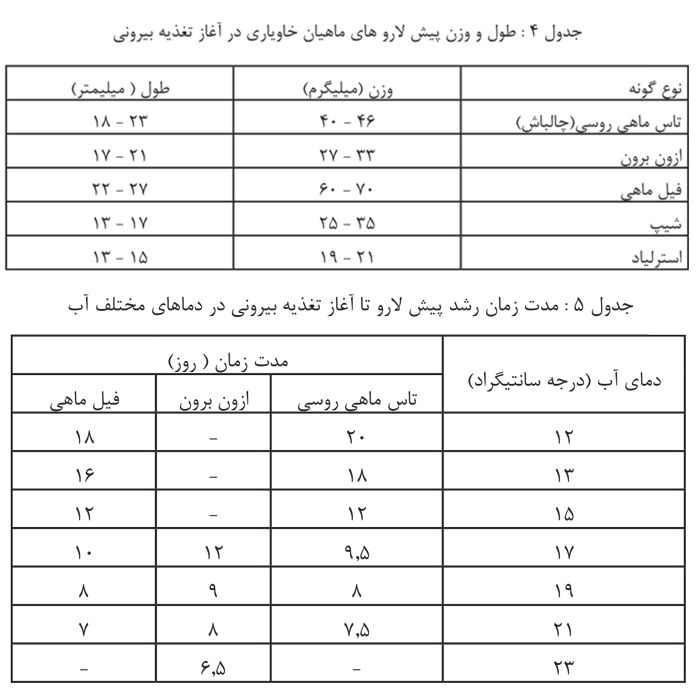 جدول ۴ : طول و وزن پیش لارو های ماهیان خاویاری در آغاز تغذیه بیرونی
نوع گونه وزن (میلیگرم) طول ( میلیمتر)
تاس ماهی روسی(چالباش) ۴۰ – ۴۶ ۱۸ – ۲۳
ازون برون ۲۷ – ۳۳ ۱۷ – ۲۱
فیل ماهی ۶۰ – ۷۰ ۲۲ – ۲۷
شیپ ۲۵ – ۳۵ ۱۳ – ۱۷
استرلیاد ۱۹ – ۲۱ ۱۳ – ۱۵
جدول ۵ : مدت زمان رشد پیش لارو تا آغاز تغذیه بیرونی در دماهای مختلف آب
دمای آب (درجه سانتیگراد) مدت زمان ( روز)
تاس ماهی روسی ازون برون فیل ماهی
۱۲ ۲۰ – ۱۸
۱۳ ۱۸ – ۱۶
۱۵ ۱۲ – ۱۲
۱۷ ۹,۵ ۱۲ ۱۰
۱۹ ۸ ۹ ۸
۲۱ ۷,۵ ۸ ۷
۲۳ – ۶,۵ –